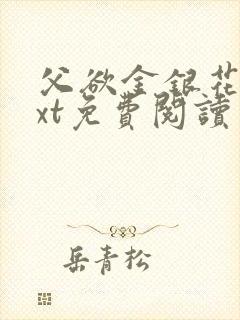 父欲金銀花
xt免費閱讀
岳青松